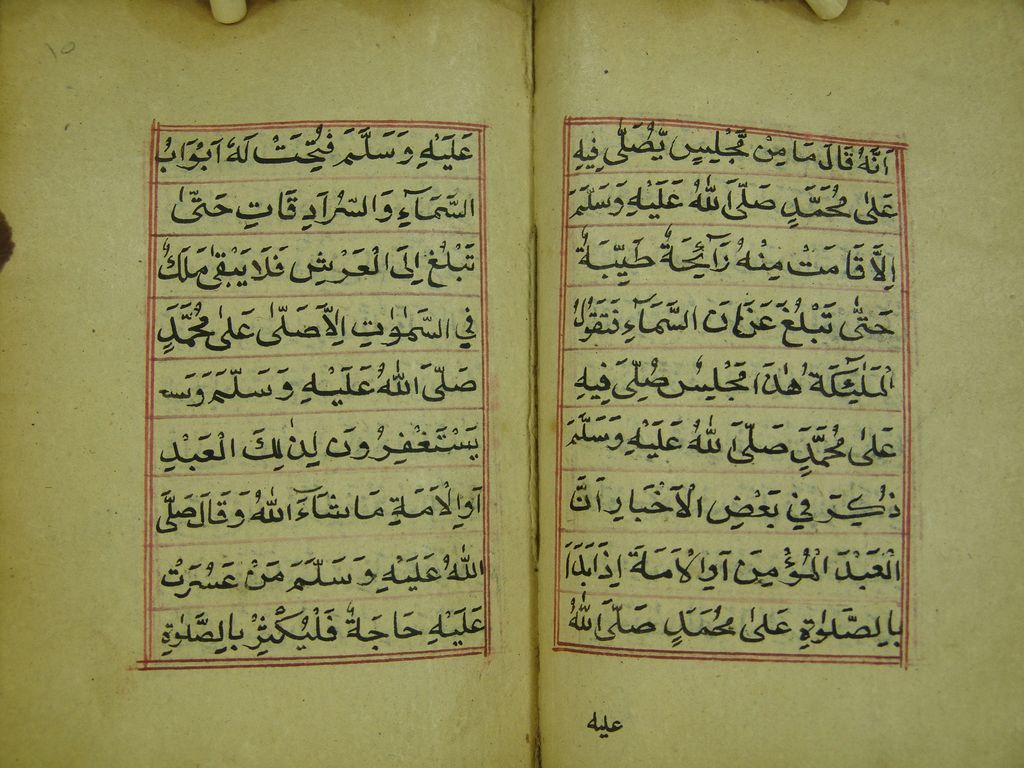 اَنَّهُ قَالَ مَا مِنْ مَّجْلِسٍ يُّصَلّٰى فِيْهِ
عَلٰى مُحَمَّدٍ صَلَّى اللّٰهُ عَلَيْهِ وَسَلَّمَ
اِلَّا قَامَتْ مِنْهُ رَآئِحَةٌ طَيِّبَةٌ
حَتّٰى تَبْلُغَ عَنَانَ السَّمَآءِ فَتَقُوْلُ
الْمَلٰٓئِكَةُ هٰذَا مَجْلِسٌ صُلِّىَ فِيْهِ
عَلٰى مُحَمَّدٍ صَلَّى اللّٰهُ عَلَيْهِ وَسَلَّمَ
ذُكِرَ فِيْ بَعْضِ الْاَخْبَارِ اَنَّ
الْعَبْدَ الْمُؤْمِنَ اَوِ الْاَمَةَ اِذَا بَدَاَ
بِالصَّلٰوةِ عَلٰى مُحَمَّدٍ صَلَّى اللّٰهُ
عليه
١٥
عَلَيْهِ وَسَلَّمَ فُتِحَتْ لَهٗ اَبْوَابُ
السَّمَآءِ وَالسُّرَادِقَاتِ حَتّٰى
تَبْلُغَ اِلَى الْعَرْشِ فَلَا يَبْقٰى مَلَكٌ
فِي السَّمٰوٰتِ اِلَّا صَلّٰى عَلٰى مُحَمَّدٍ
صَلَّى اللّٰهُ عَلَيْهِ وَسَلَّمَ
يَسْتَغْفِرُوْنَ لِذٰلِكَ الْعَبْدِ
اَوِ الْاَمَةِ مَا شَآءَ اللّٰهُ وَقَالَ صَلَّى
اللّٰهُ عَلَيْهِ وَسَلَّمَ مَنْ عَسُرَتْ
عَلَيْهِ حَاجَةٌ فَلْيُكْثِرْ بِالصَّلٰوةِ